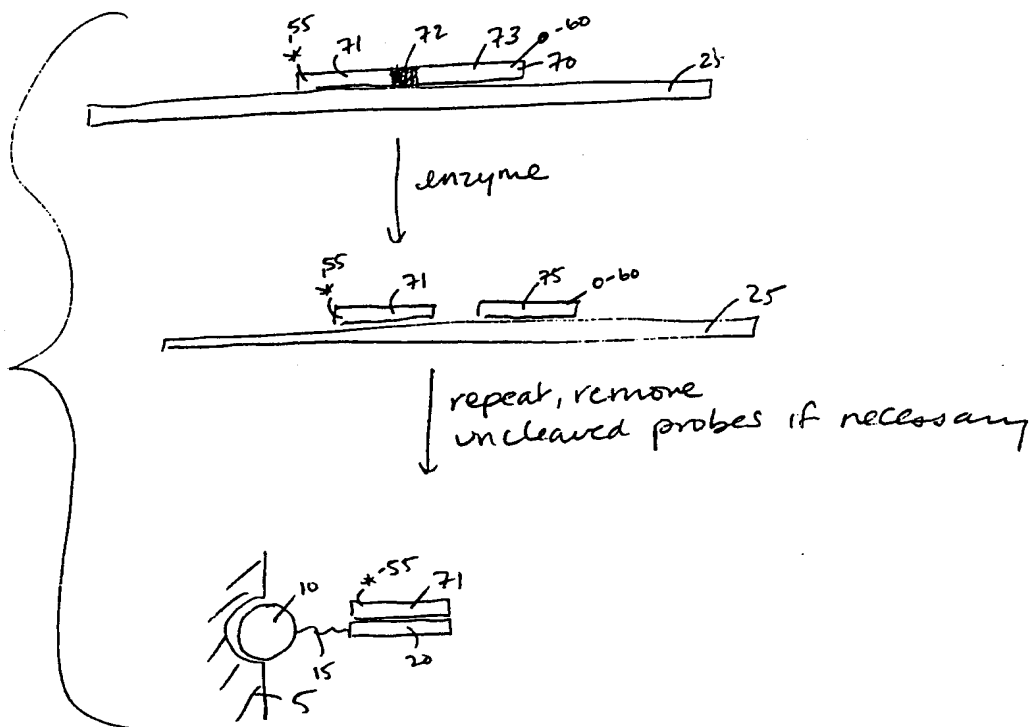 *55 71 72 73 -60
70 25
enzyme
*55 71 75 0-60
25
repeat, remove
uncleaved probes if necessary
10 *-55 71
15 20
5